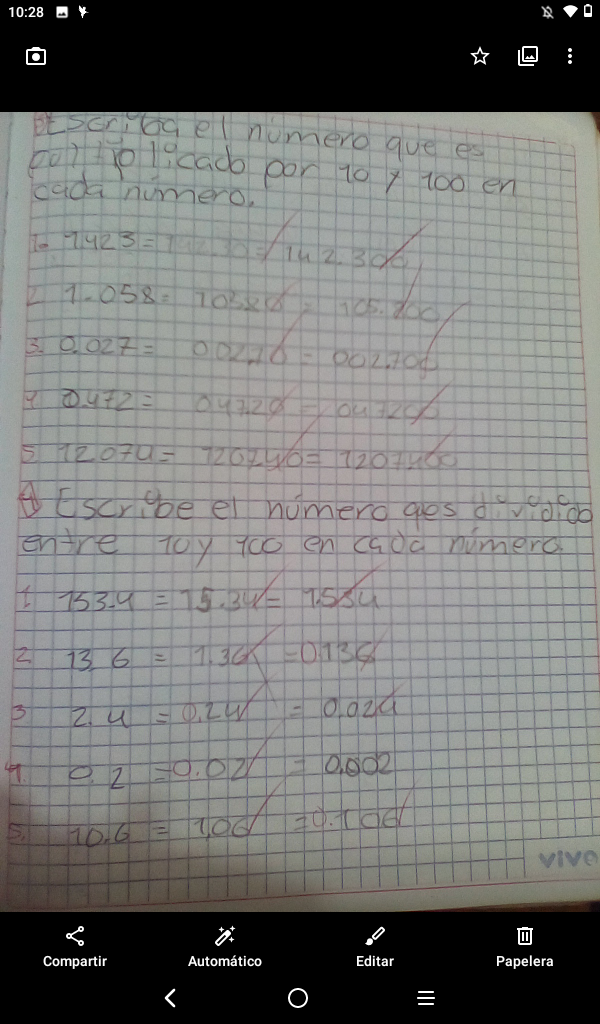 10:28
Escriba el número que es
multiplicado por 10 y 100 en
cada número.
1. 1.423 = = 142.300
2. 1.058 = = 105.800
3. 0.027 = 002.70 = 002.700
4. 0.472 = 047.20 = 047200
5. 12.074 = 120740 = 1207400
4) Escribe el número qes dividido
entre 10 y 100 en cada número
1. 153.4 = 15.34 = 1.534
2. 13.6 = 1.36 = 0.136
3. 2.4 = 0.24 = 0.024
4. 0.2 = 0.02 = 0.002
5. 10.6 = 1.06 = 0.106
vivo
Compartir
Automático
Editar
Papelera